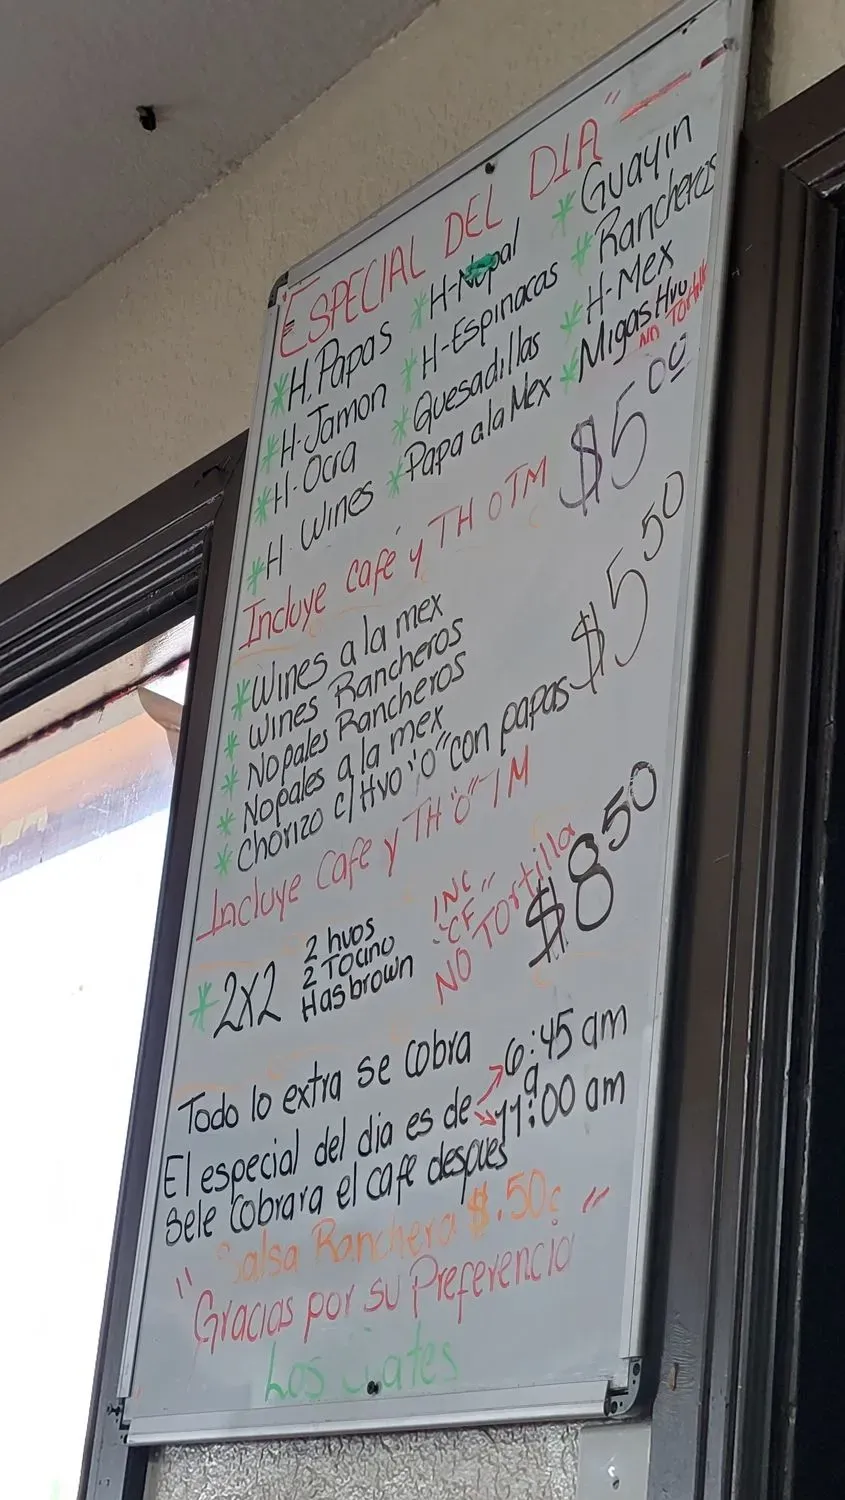 "ESPECIAL DEL DIA"
*H. Papas *H-Nopal *Guayin
*H-Jamon *H-Espinacas *Rancheros
*H-Ocra *Quesadillas *H-Mex
*H. Wines *Papa a la Mex *Migas Hvo
NO Tortilla
Incluye café y TH O TM $5.00
*Wines a la mex
*Wines Rancheros
*Nopales Rancheros
*Nopales a la mex
*Chorizo c/Hvo "o" con papas $5.50
Incluye Cafe y TH "o" TM
*2X2 2 huos
2 Tocino
Hasbrown
INC
"CF"
NO TOrtilla
$8.50
Todo lo extra se cobra
El especial del dia es de 6:45 am
a
11:00 am
Sele Cobrara el café despues
Salsa Ranchera $.50¢
"Gracias por su Preferencia"
Los